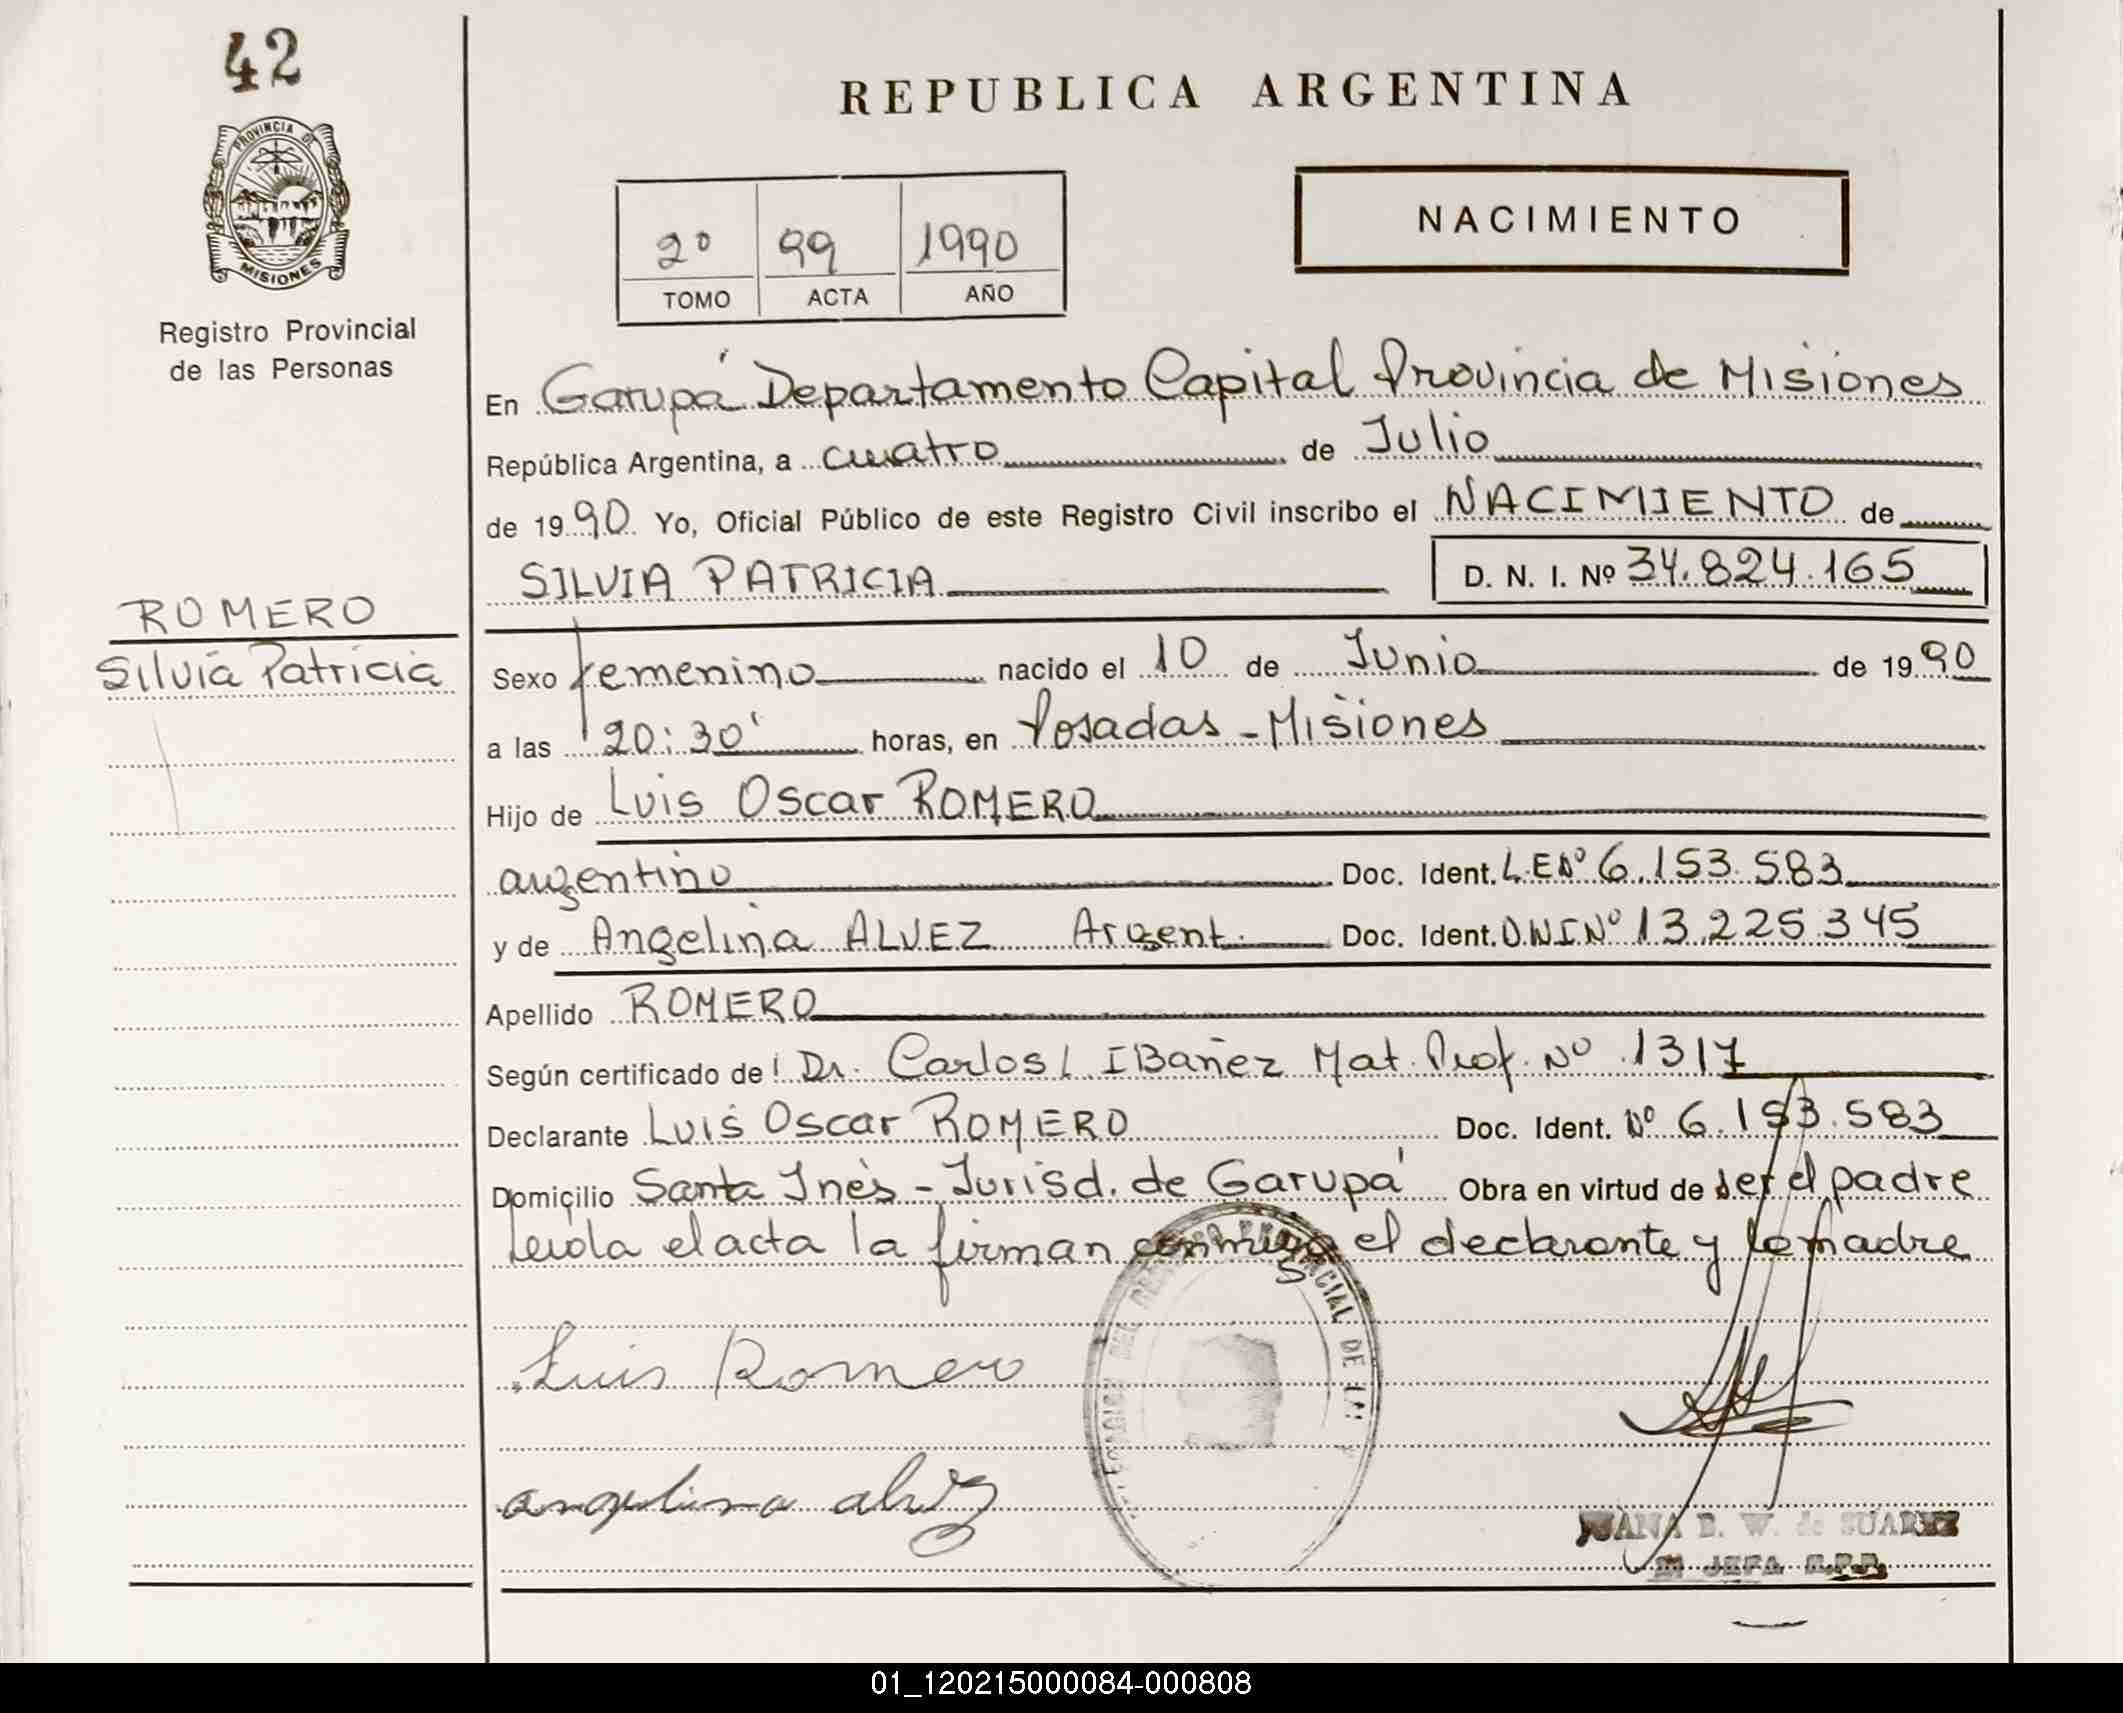 42
REPUBLICA ARGENTINA
PROVINCIA DE
MISIONES
Registro Provincial
de las Personas
2º 99 1990
TOMO ACTA AÑO
NACIMIENTO
En Garupá Departamento Capital Provincia de Misiones
República Argentina, a cuatro de Julio
de 1990 Yo, Oficial Público de este Registro Civil inscribo el NACIMIENTO de
SILVIA PATRICIA D. N. I. Nº 34.824.165
ROMERO
Silvia Patricia
Sexo femenino nacido el 10 de Junio de 1990
a las 20:30' horas, en Posadas - Misiones
Hijo de Luis Oscar ROMERO
argentino Doc. Ident. L.E Nº 6.153.583
y de Angelina ALVEZ Argent. Doc. Ident. D.N.I Nº 13.225.345
Apellido ROMERO
Según certificado de Dr. Carlos L IBañez Mat. Prof. Nº 1317
Declarante Luis Oscar ROMERO Doc. Ident. Nº 6.153.583
Domicilio Santa Inès - Jurisd. de Garupá Obra en virtud de ser el padre
Leida el acta la firman conmigo el declarante y la madre
Luis Romero
angelina alvez
JUANA E. W. de SUAREZ
JEFA R.P.P.
01_120215000084-000808